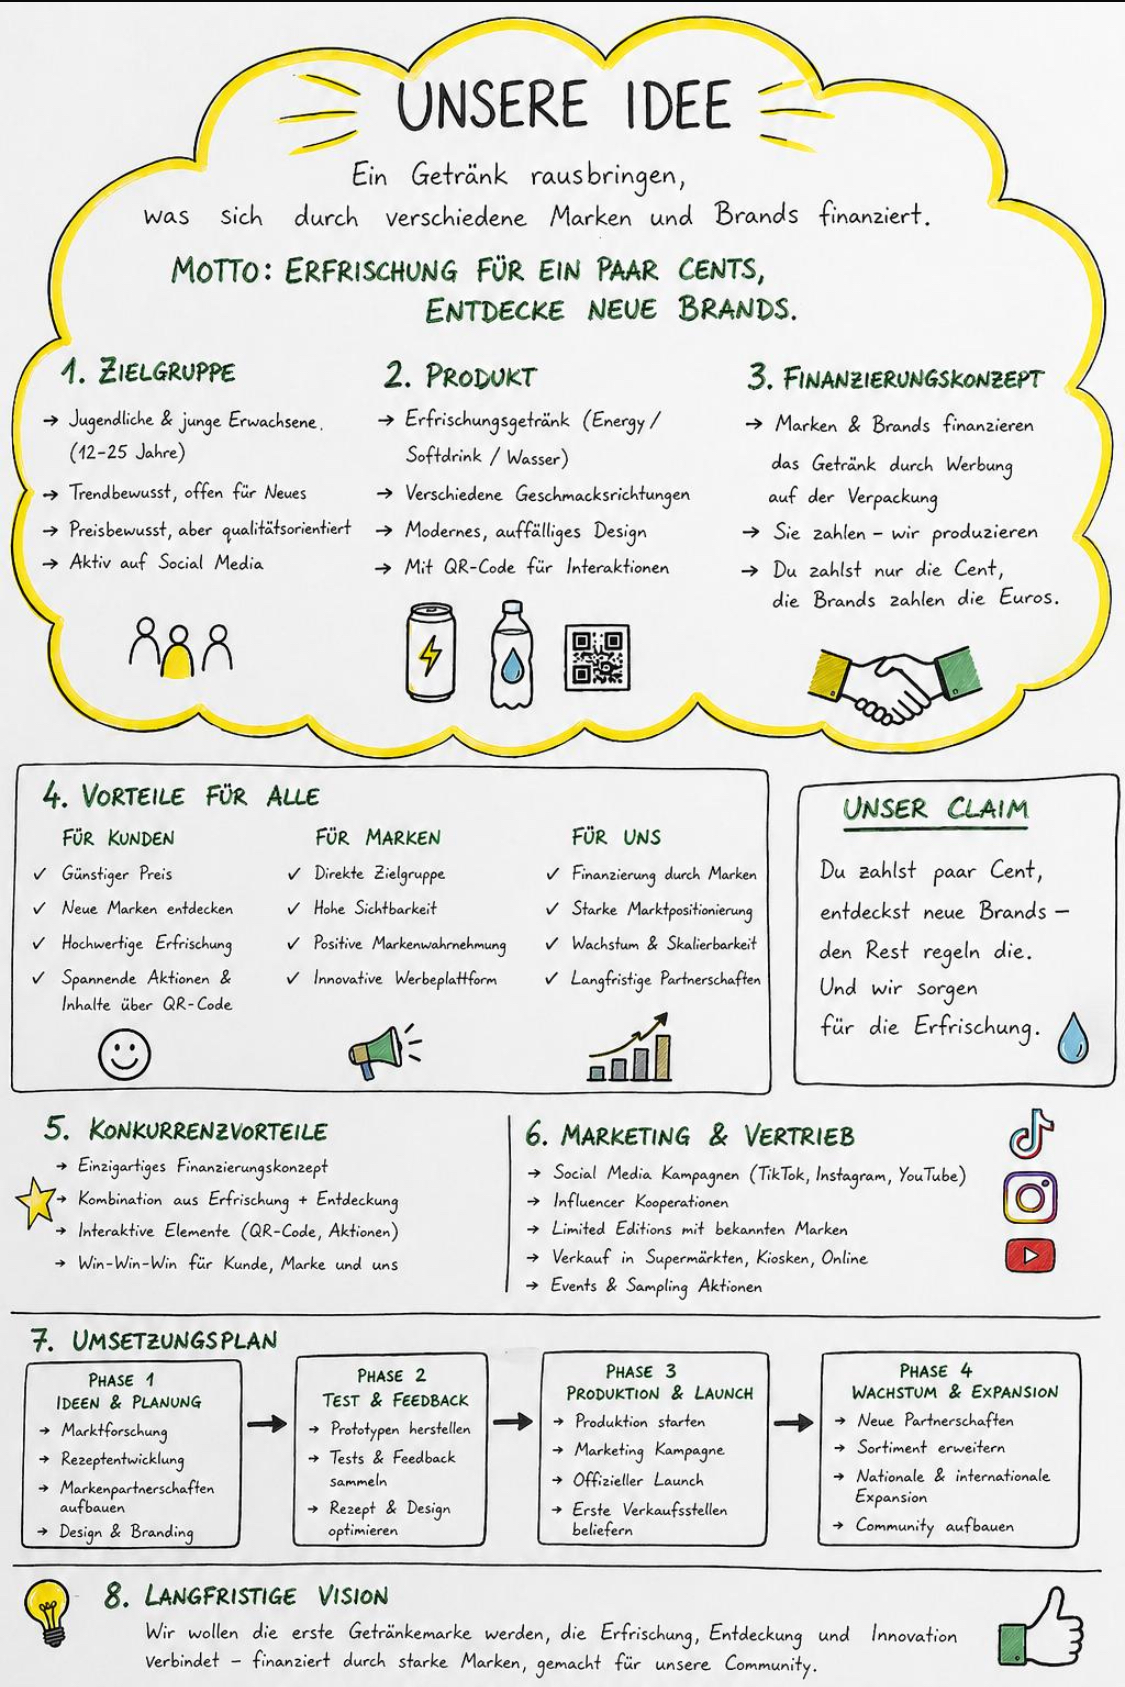 UNSERE IDEE
Ein Getränk rausbringen,
was sich durch verschiedene Marken und Brands finanziert.
MOTTO: ERFRISCHUNG FÜR EIN PAAR CENTS,
ENTDECKE NEUE BRANDS.
1. ZIELGRUPPE
→ Jugendliche & junge Erwachsene.
(12-25 Jahre)
→ Trendbewusst, offen für Neues
→ Preisbewusst, aber qualitätsorientiert
→ Aktiv auf Social Media
2. PRODUKT
→ Erfrischungsgetränk (Energy /
Softdrink / Wasser)
→ Verschiedene Geschmacksrichtungen
→ Modernes, auffälliges Design
→ Mit QR-Code für Interaktionen
3. FINANZIERUNGSKONZEPT
→ Marken & Brands finanzieren
das Getränk durch Werbung
auf der Verpackung
→ Sie zahlen – wir produzieren
→ Du zahlst nur die Cent,
die Brands zahlen die Euros.
4. VORTEILE FÜR ALLE
FÜR KUNDEN
✓ Günstiger Preis
✓ Neue Marken entdecken
✓ Hochwertige Erfrischung
✓ Spannende Aktionen &
Inhalte über QR-Code
FÜR MARKEN
✓ Direkte Zielgruppe
✓ Hohe Sichtbarkeit
✓ Positive Markenwahrnehmung
✓ Innovative Werbeplattform
FÜR UNS
✓ Finanzierung durch Marken
✓ Starke Marktpositionierung
✓ Wachstum & Skalierbarkeit
✓ Langfristige Partnerschaften
UNSER CLAIM
Du zahlst paar Cent,
entdeckst neue Brands –
den Rest regeln die.
Und wir sorgen
für die Erfrischung.
5. KONKURRENZVORTEILE
→ Einzigartiges Finanzierungskonzept
→ Kombination aus Erfrischung + Entdeckung
→ Interaktive Elemente (QR-Code, Aktionen)
→ Win-Win-Win für Kunde, Marke und uns
6. MARKETING & VERTRIEB
→ Social Media Kampagnen (TikTok, Instagram, YouTube)
→ Influencer Kooperationen
→ Limited Editions mit bekannten Marken
→ Verkauf in Supermärkten, Kiosken, Online
→ Events & Sampling Aktionen
7. UMSETZUNGSPLAN
PHASE 1
IDEEN & PLANUNG
→ Marktforschung
→ Rezeptentwicklung
→ Markenpartnerschaften
aufbauen
→ Design & Branding
PHASE 2
TEST & FEEDBACK
→ Prototypen herstellen
→ Tests & Feedback
sammeln
→ Rezept & Design
optimieren
PHASE 3
PRODUKTION & LAUNCH
→ Produktion starten
→ Marketing Kampagne
→ Offizieller Launch
→ Erste Verkaufsstellen
beliefern
PHASE 4
WACHSTUM & EXPANSION
→ Neue Partnerschaften
→ Sortiment erweitern
→ Nationale & internationale
Expansion
→ Community aufbauen
8. LANGFRISTIGE VISION
Wir wollen die erste Getränkemarke werden, die Erfrischung, Entdeckung und Innovation
verbindet – finanziert durch starke Marken, gemacht für unsere Community.